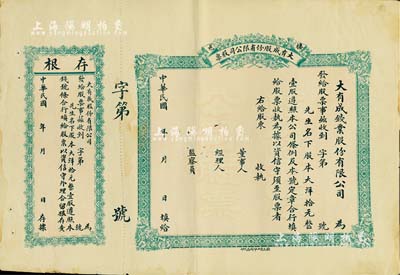 上海泓明拍卖
大有成股份有限公司股票
大有成钱業股份有限公司 為
發給股票事茲收到 字第 號
先生名下股本大洋拾元整
壹股遵照本公司條例及本號定章合行填
給股票收執為據以資信守須至股票者
右給股東 收執
董事人
經理人
監察員
中華民國 年 月 日填給
字第 號
存根
大有成股份有限公司 為
發給股票事茲收到 字第 號
先生名下股本大洋拾元整壹股遵照本
中華民國 年 月 日存據